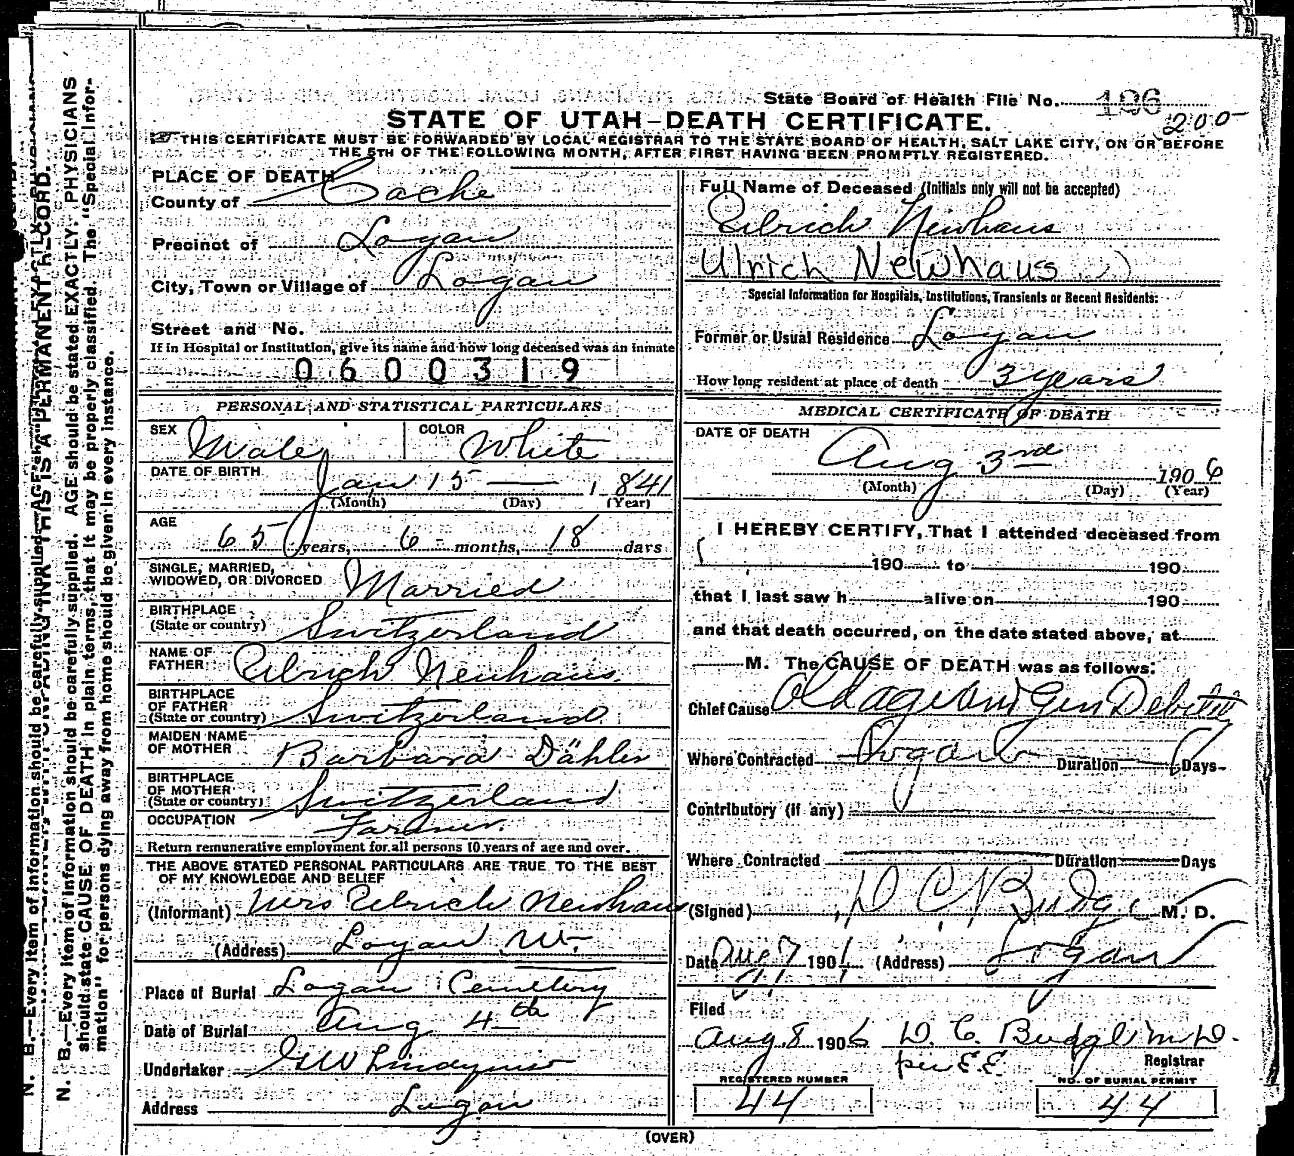 State Board of Health File No. 196
200
STATE OF UTAH-DEATH CERTIFICATE.
THIS CERTIFICATE MUST BE FORWARDED BY LOCAL REGISTRAR TO THE STATE BOARD OF HEALTH, SALT LAKE CITY, ON OR BEFORE
THE 5TH OF THE FOLLOWING MONTH, AFTER FIRST HAVING BEEN PROMPTLY REGISTERED.
PLACE OF DEATH
County of Cache
Precinct of Logan
City, Town or Village of Logan
Street and No.
If in Hospital or Institution, give its name and how long deceased was an inmate
0600319
PERSONAL AND STATISTICAL PARTICULARS
SEX Male COLOR White
DATE OF BIRTH Jan 15 1841
(Month) (Day) (Year)
AGE
65 years, 6 months, 18 days
SINGLE, MARRIED,
WIDOWED, OR DIVORCED Married
BIRTHPLACE
(State or country) Switzerland
NAME OF
FATHER Ulrich Neuhaus
BIRTHPLACE
OF FATHER
(State or country) Switzerland
MAIDEN NAME
OF MOTHER Barbara Dähler
BIRTHPLACE
OF MOTHER
(State or country) Switzerland
OCCUPATION Farmer.
Return remunerative employment for all persons 10 years of age and over.
THE ABOVE STATED PERSONAL PARTICULARS ARE TRUE TO THE BEST
OF MY KNOWLEDGE AND BELIEF
(Informant) Mrs Ulrich Neuhaus
(Address) Logan
Place of Burial Logan Cemetery
Date of Burial Aug 4th
Undertaker GW Lindquist
Address Logan
Full Name of Deceased (Initials only will not be accepted)
Ulrich Newhaus
Ulrich Newhaus
Special Information for Hospitals, Institutions, Transients or Recent Residents:
Former or Usual Residence Logan
How long resident at place of death 3 years
MEDICAL CERTIFICATE OF DEATH
DATE OF DEATH
Aug 3rd 1906
(Month) (Day) (Year)
I HEREBY CERTIFY, That I attended deceased from
190 to 190
that I last saw h alive on 190
and that death occurred, on the date stated above, at
M. The CAUSE OF DEATH was as follows:
Chief Cause Old age and Gen Debility
Where Contracted Logan Duration Days
Contributory (if any)
Where Contracted Duration Days
(Signed) D C Budge M. D.
Date Aug 7 190 (Address) Logan
Filed
Aug 8 1906 D. C. Budge M D.
per E.E. Registrar
REGISTERED NUMBER
44
NO. OF BURIAL PERMIT
44
(OVER)
N. B.—Every item of information should be carefully supplied. AGE should be stated EXACTLY. PHYSICIANS
should state CAUSE OF DEATH in plain terms, that it may be properly classified. The "Special Infor-
mation" for persons dying away from home should be given in every instance.
THIS IS A PERMANENT RECORD.
N. B.—Every item of information should be carefully supplied.